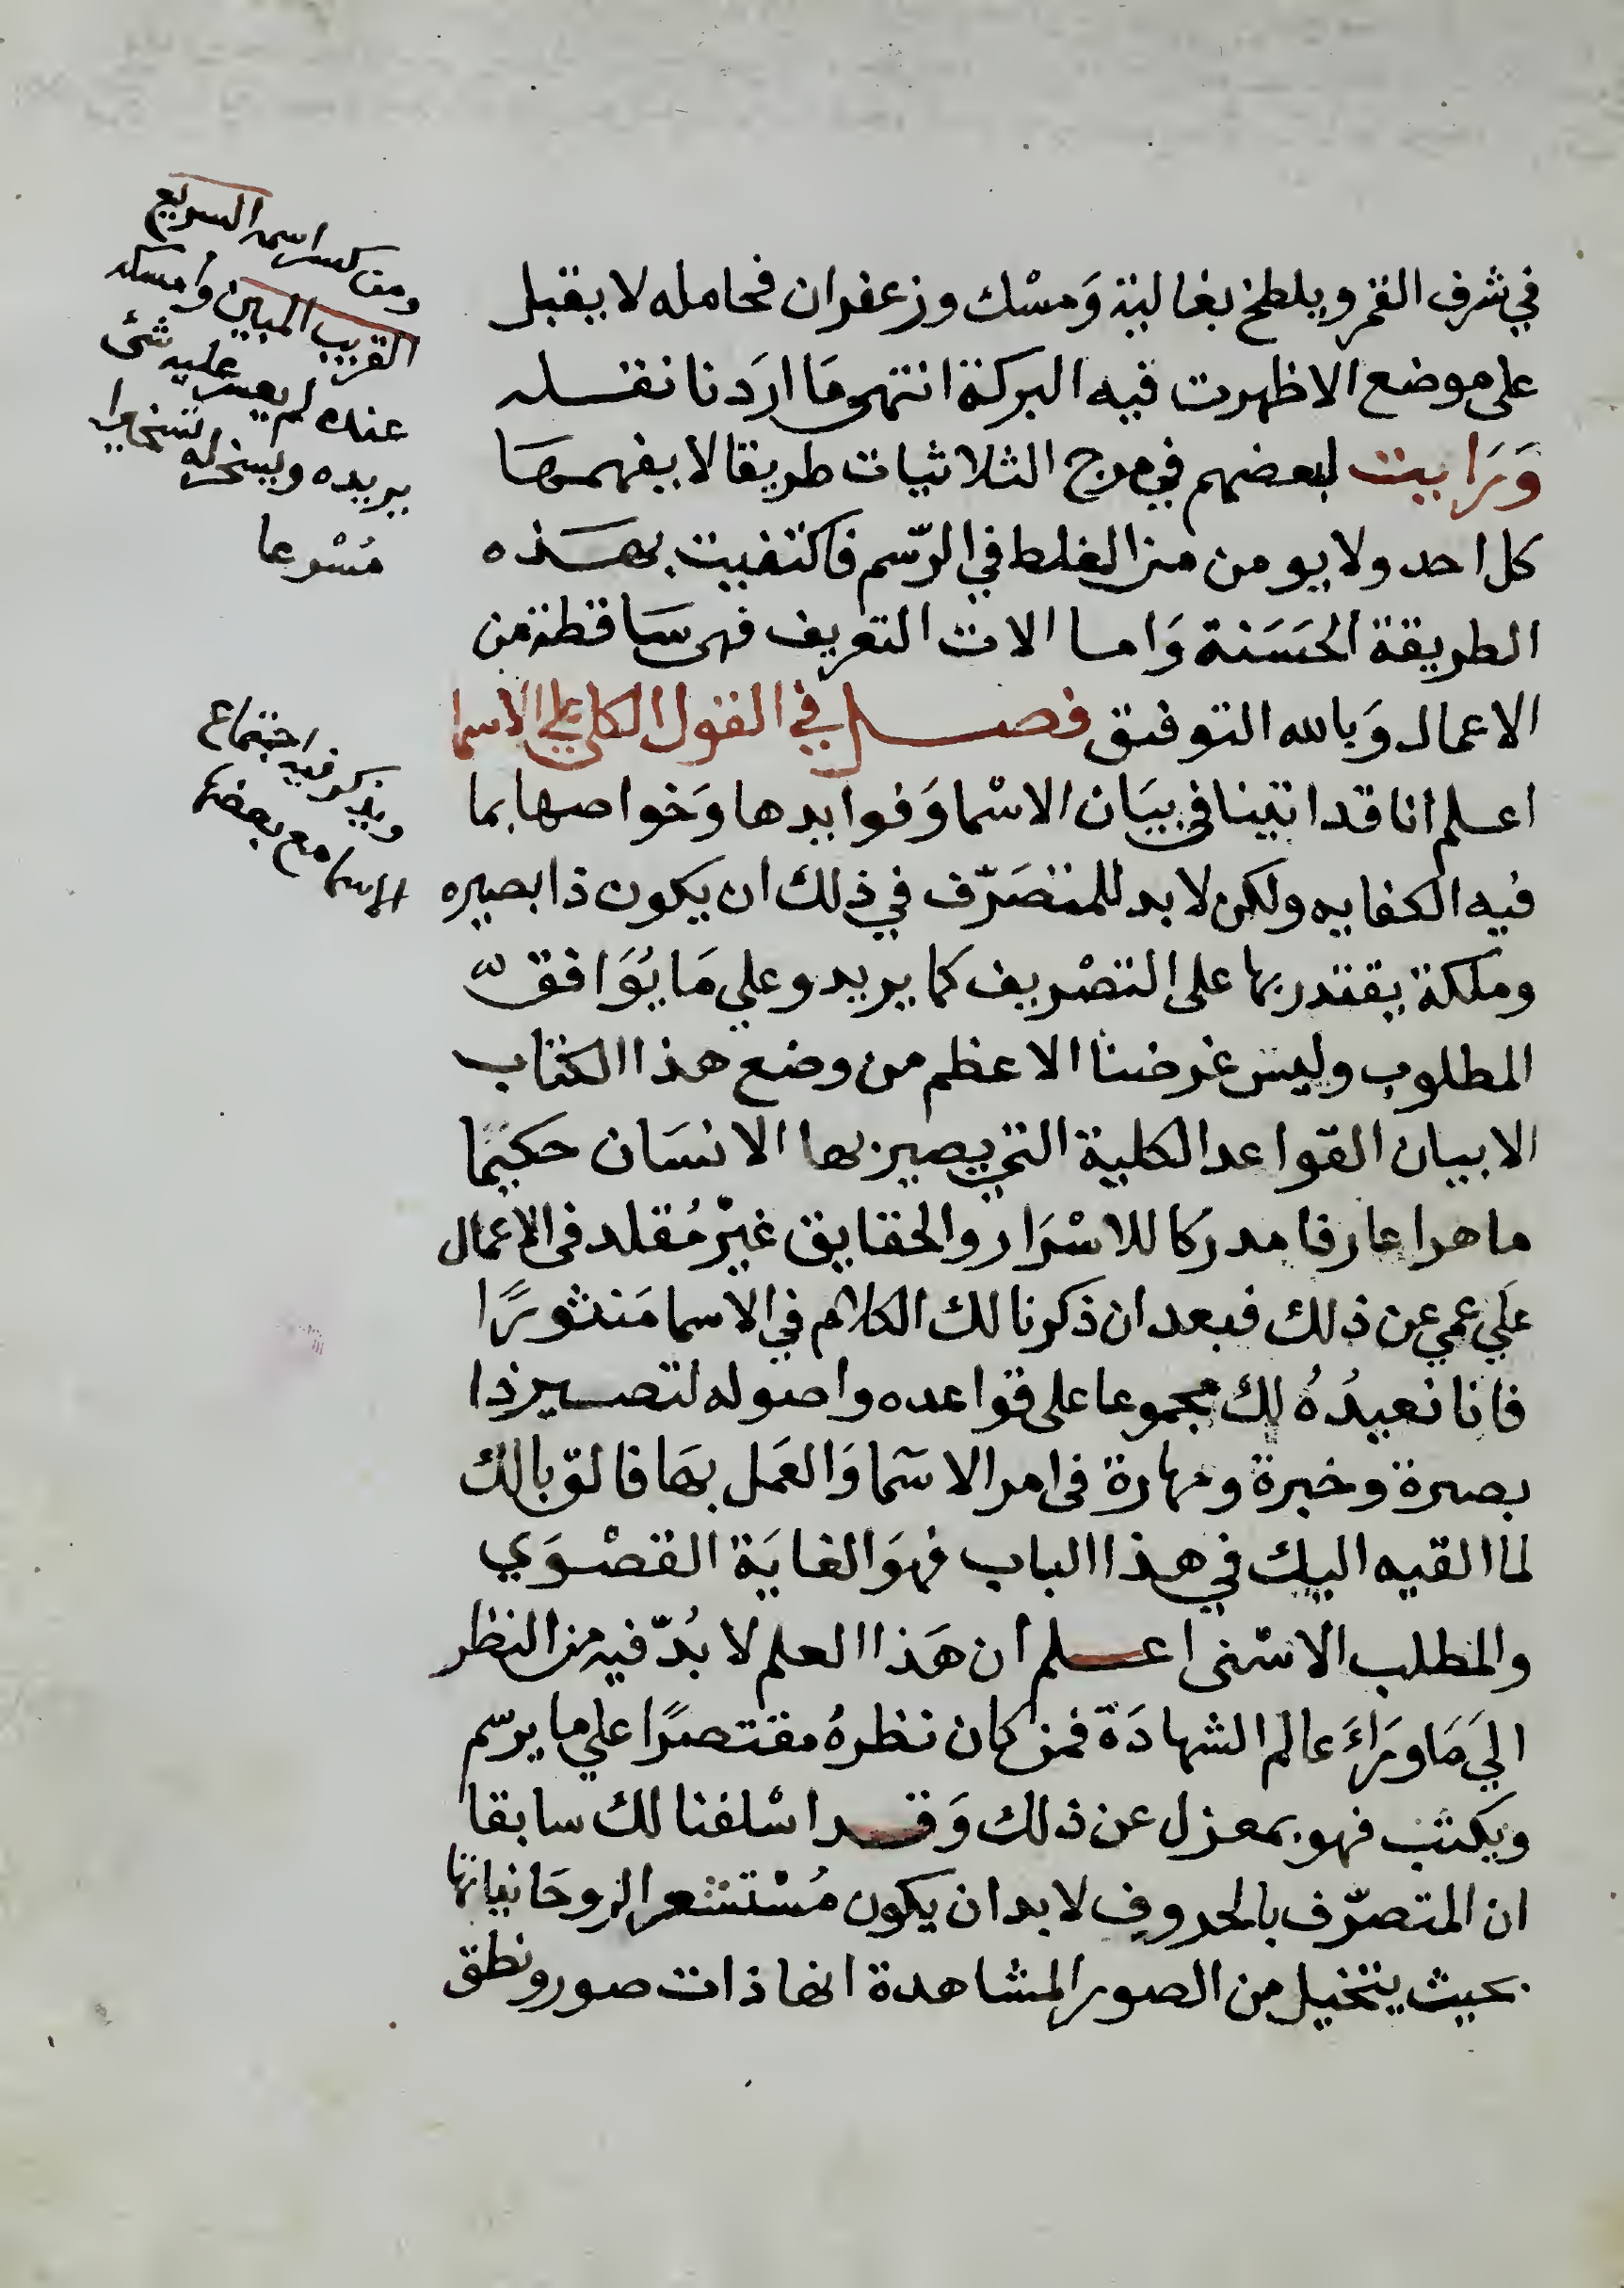 في شرف القمر ويلطخ بغالية وَمسْك وزعفران فحامله لا يقبل
على موضع الا ظهرت فيه البركة انتهى مَا ارَدنا نقله
وَرَايت لبعضهم في مزج الثلاثيات طريقا لا يفهمهَا
كل احد ولا يومن من الغلط في الرّسم فاكتفيت بهَذه
الطريقة الحَسَنة وَاما الات التعريف فهى سَاقطة من
الاعمال وَبالله التوفيق فصل في القول الكلي على الاسما
اعلم انا قد اتينا في بيَان الاسْما وَفوايدها وَخواصها بما
فيه الكفايه ولكن لا بد للمتصَرّف في ذلك ان يكون ذا بصيره
وملكة يقتدر بها على التصْريف كما يريد وعلي مَا يُوَافق
المطلوب وليس غرضنا الاعظم من وضع هذا الكتاب
الا بيان القواعد الكلية التي يصير بها الانسَان حكيمًا
ماهرا عارفا مدركا للاسْرَار والحقايق غيْر مُقلد في الاعمال
عَلي عمي عن ذلك فبعد ان ذكرنا لك الكلام في الاسما مَنثورًا
فانا نعيدُهُ لك مجموعا على قواعده واصوله لتصير ذا
بصيرة وخبرة ومهارة في امر الاسَما وَالعَمل بهَا فالق بالك
لما القيه اليك في هذا الباب فهوَ الغايَة القصْوَي
والمطلب الاسْنى اعلم ان هَذا العلم لا بُدّ فيه من النظر
الَي مَا ورَاءَ عالم الشهادَة فمن كان نظرهُ مقتصرًا علي ما يرسم
ويكتب فهو بمعزل عن ذلك وَقد اسْلفنا لك سابقا
ان المتصرّف بالحروف لا بد ان يكون مُسْتشعرا لروحَانياتها
بحيث يتخيل من الصور المشاهدة انها ذات صور ونطق
ومن كسر اسمه السريع
القريب المبين وامسكه
عنده لم يعسر عليه شئ
يريده ويسخر له تسخيرا
مُسْرعا
ويذكر فيه اجتماع
الاسما مع بعضها